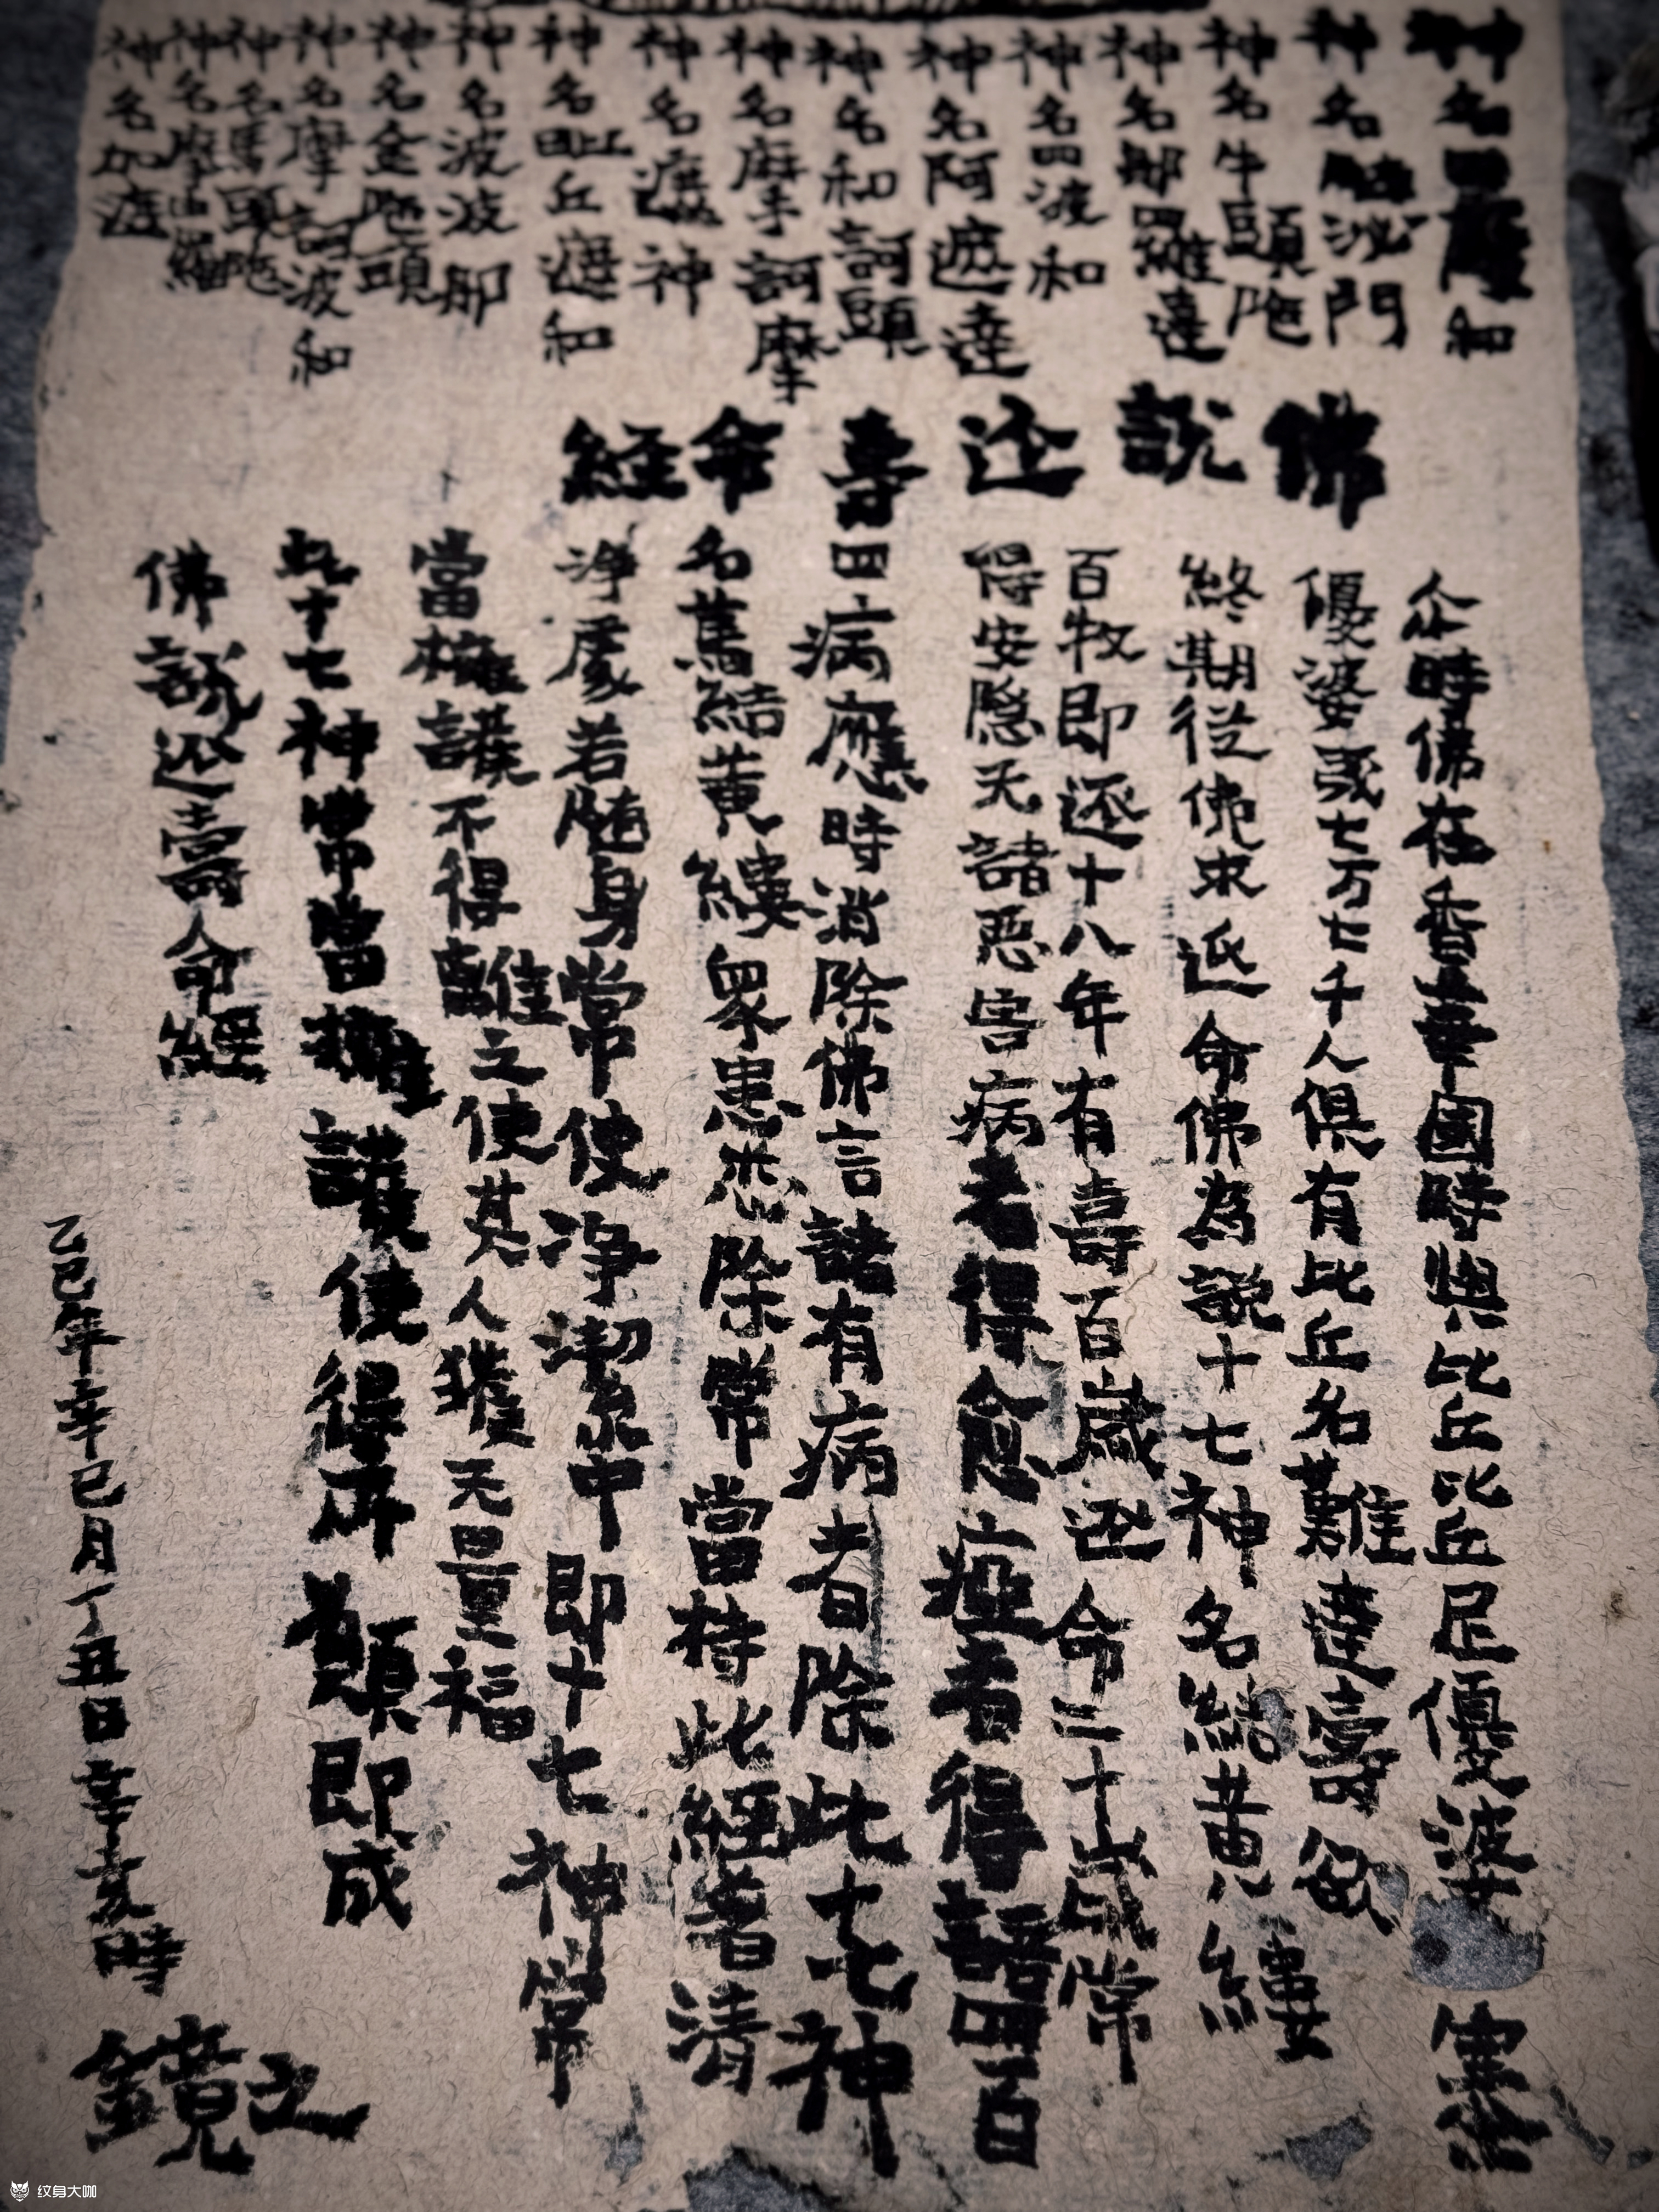 神名四薩和
神名胎泌門
神名牛頭陁
神名那羅達
神名四波和
神名阿遮達
神名和訶頭
神名摩訶摩
神名遮神
神名毗丘遮和
神名波波那
神名金陁頭
神名摩訶波和
神名馬頭陁
神名摩留羅
神名加遮
佛說延壽命經
尒時佛在香華園時與比丘比丘尼優婆塞
優婆夷七万七千人俱有比丘名難達壽欲
終期從佛求延命佛為說十七神名結黄縷
百牧即還十八年有壽百歲延命二十歲常
得安隱无諸惡害病者得愈瘂者得語四百
四病應時消除佛言諸有病者除此十七神
名篤結黄縷眾患悉除常當持此經著清
淨處若随身常使淨潔中即十七神常
當擁護不得離之使其人獲无量福
此十七神常當擁護使得所願即成
佛說延壽命經
乙巳年辛巳月丁丑日辛亥時
鏡之
纹身大咖